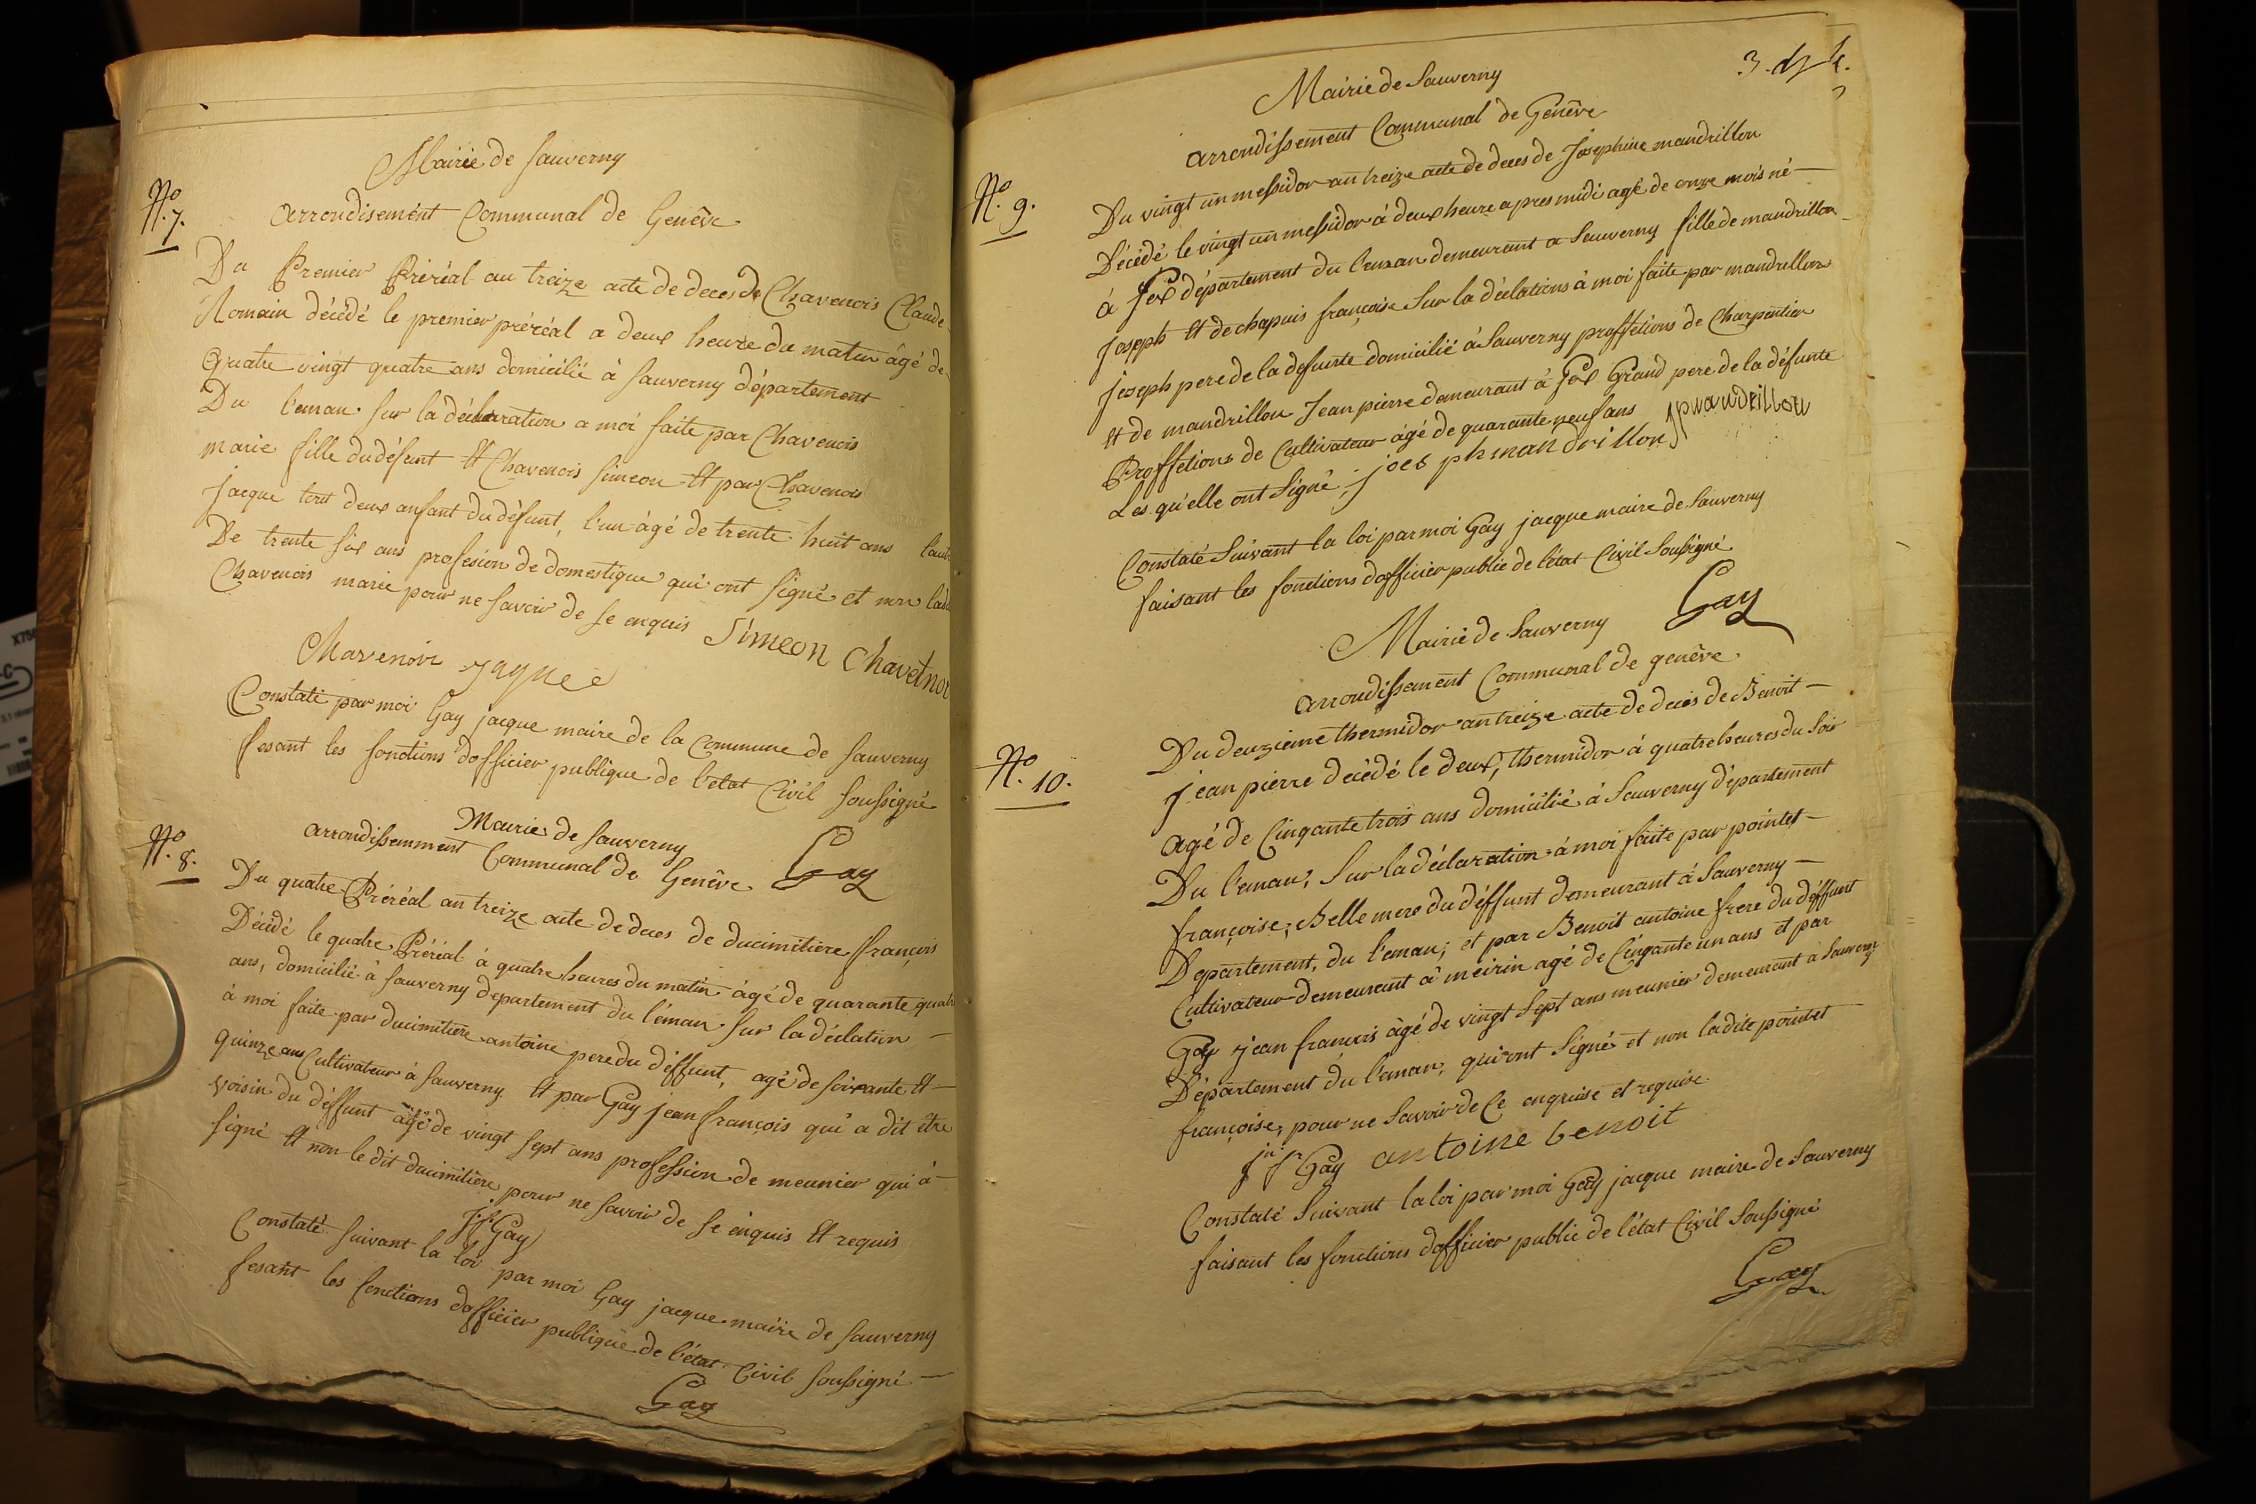 Mairie de Sauverny
N.o 7.
arrondisement Communal de Genêve
Du Premier Préréal an treize acte de deces de Chavenois Claude
Romain décédé le premier préréal a deux heure du matin âgé de
quatre vingt quatre ans domicilié à Sauverny département
Du l'éman. Sur la déclaration a moi faite par Chavenois
marie fille du défunt et Chavenois Simeon et par Chavenois
jacque tout deux anfant du défunt, l'un âgé de trente huit ans
De trente six ans profesion de domestique qui ont signé et non
Chavenois marie pour ne savoir de se enquis
Simeon
Chavenoir
Constaté par moi Gay jacque maire de la Commune de Sauverny
fesant les fonctions d'officier publique de l'etat Civil soussigné
Gay
N.o 8.
Mairie de Sauverny
arrondissemment Communal de Genêve
Du quatre Préréal an treize acte de deces de ducimitiere françois
Décédé le quatre Préréal à quatre heures du matin âgé de quarante
ans, domicilié à Sauverny departement du l'éman sur la déclation
à moi faite par ducimitiere antoine pere du déffunt, agé de soixante et
quinze ans Cultivateur à Sauverny et par Gay jean françois qui a dit être
voisin du déffunt âgé de vingt sept ans profession de meunier qui à
signé et non le dit ducimitière pour ne savoir de se enquis et requis
Gay
Constaté suivant la loi par moi Gay jacque maire de Sauverny
fesant les fonctions d'officier publique de l'état Civil soussigné
Gay
Mairie de Sauverny
arrondissement Communal de Genêve
N.o 9.
Du vingt un messidor an treize acte de deces de Josephine mandrillon
Décédé le vingt un messidor à deux heure apres midi agé de onze mois né
à Jex département du l'eman demeurant a Sauverny fille de mandrillon
joseph et de chapuis françoise Sur la déclations à moi faite par mandrillon
joseph pere de la defunte domicilié à Sauverny proffétions de Charpentier
et de mandrillon Jean pierre demeurant à Jex Grand pere de la défunte
Proffétions de Cultivateur âgé de quarante neuf ans
Les qu'elle ont Signé, joes ph mandrillon
Constaté Suivant la loi par moi Gay jacque maire de Sauverny
faisant les fonctions d'officier public de l'état Civil Soussigné
Gay
Mairie de Sauverny
arrondissement Communal de genêve
N.o 10.
Du deuzieme thermidor an treize acte de decés de Benoit
jean pierre decédé le deux, thermidor à quatre heures du Soir
agé de Cinqante trois ans domicilié à Sauverny département
Du l'eman, Sur la déclaration à moi faite par pointet
françoise; Belle mere du déffunt demeurant à Sauverny
Departement, du l'eman, et par Benoit antoine frere du déffunt
Cultivateur demeurant à meirin agé de Cinqante un ans et par
Gay jean francois âgé de vingt Sept ans meunier demeurant à Sauverny
Département du l'eman, qui ont Signé et non ladite pointet
françoise, pour ne Savoir de Ce enquise et requise
Gay antoine benoit
Constaté Suivant la loi par moi Gay jacque maire de Sauverny
faisant les fonctions d'officier public de l'état Civil Soussigné
Gay